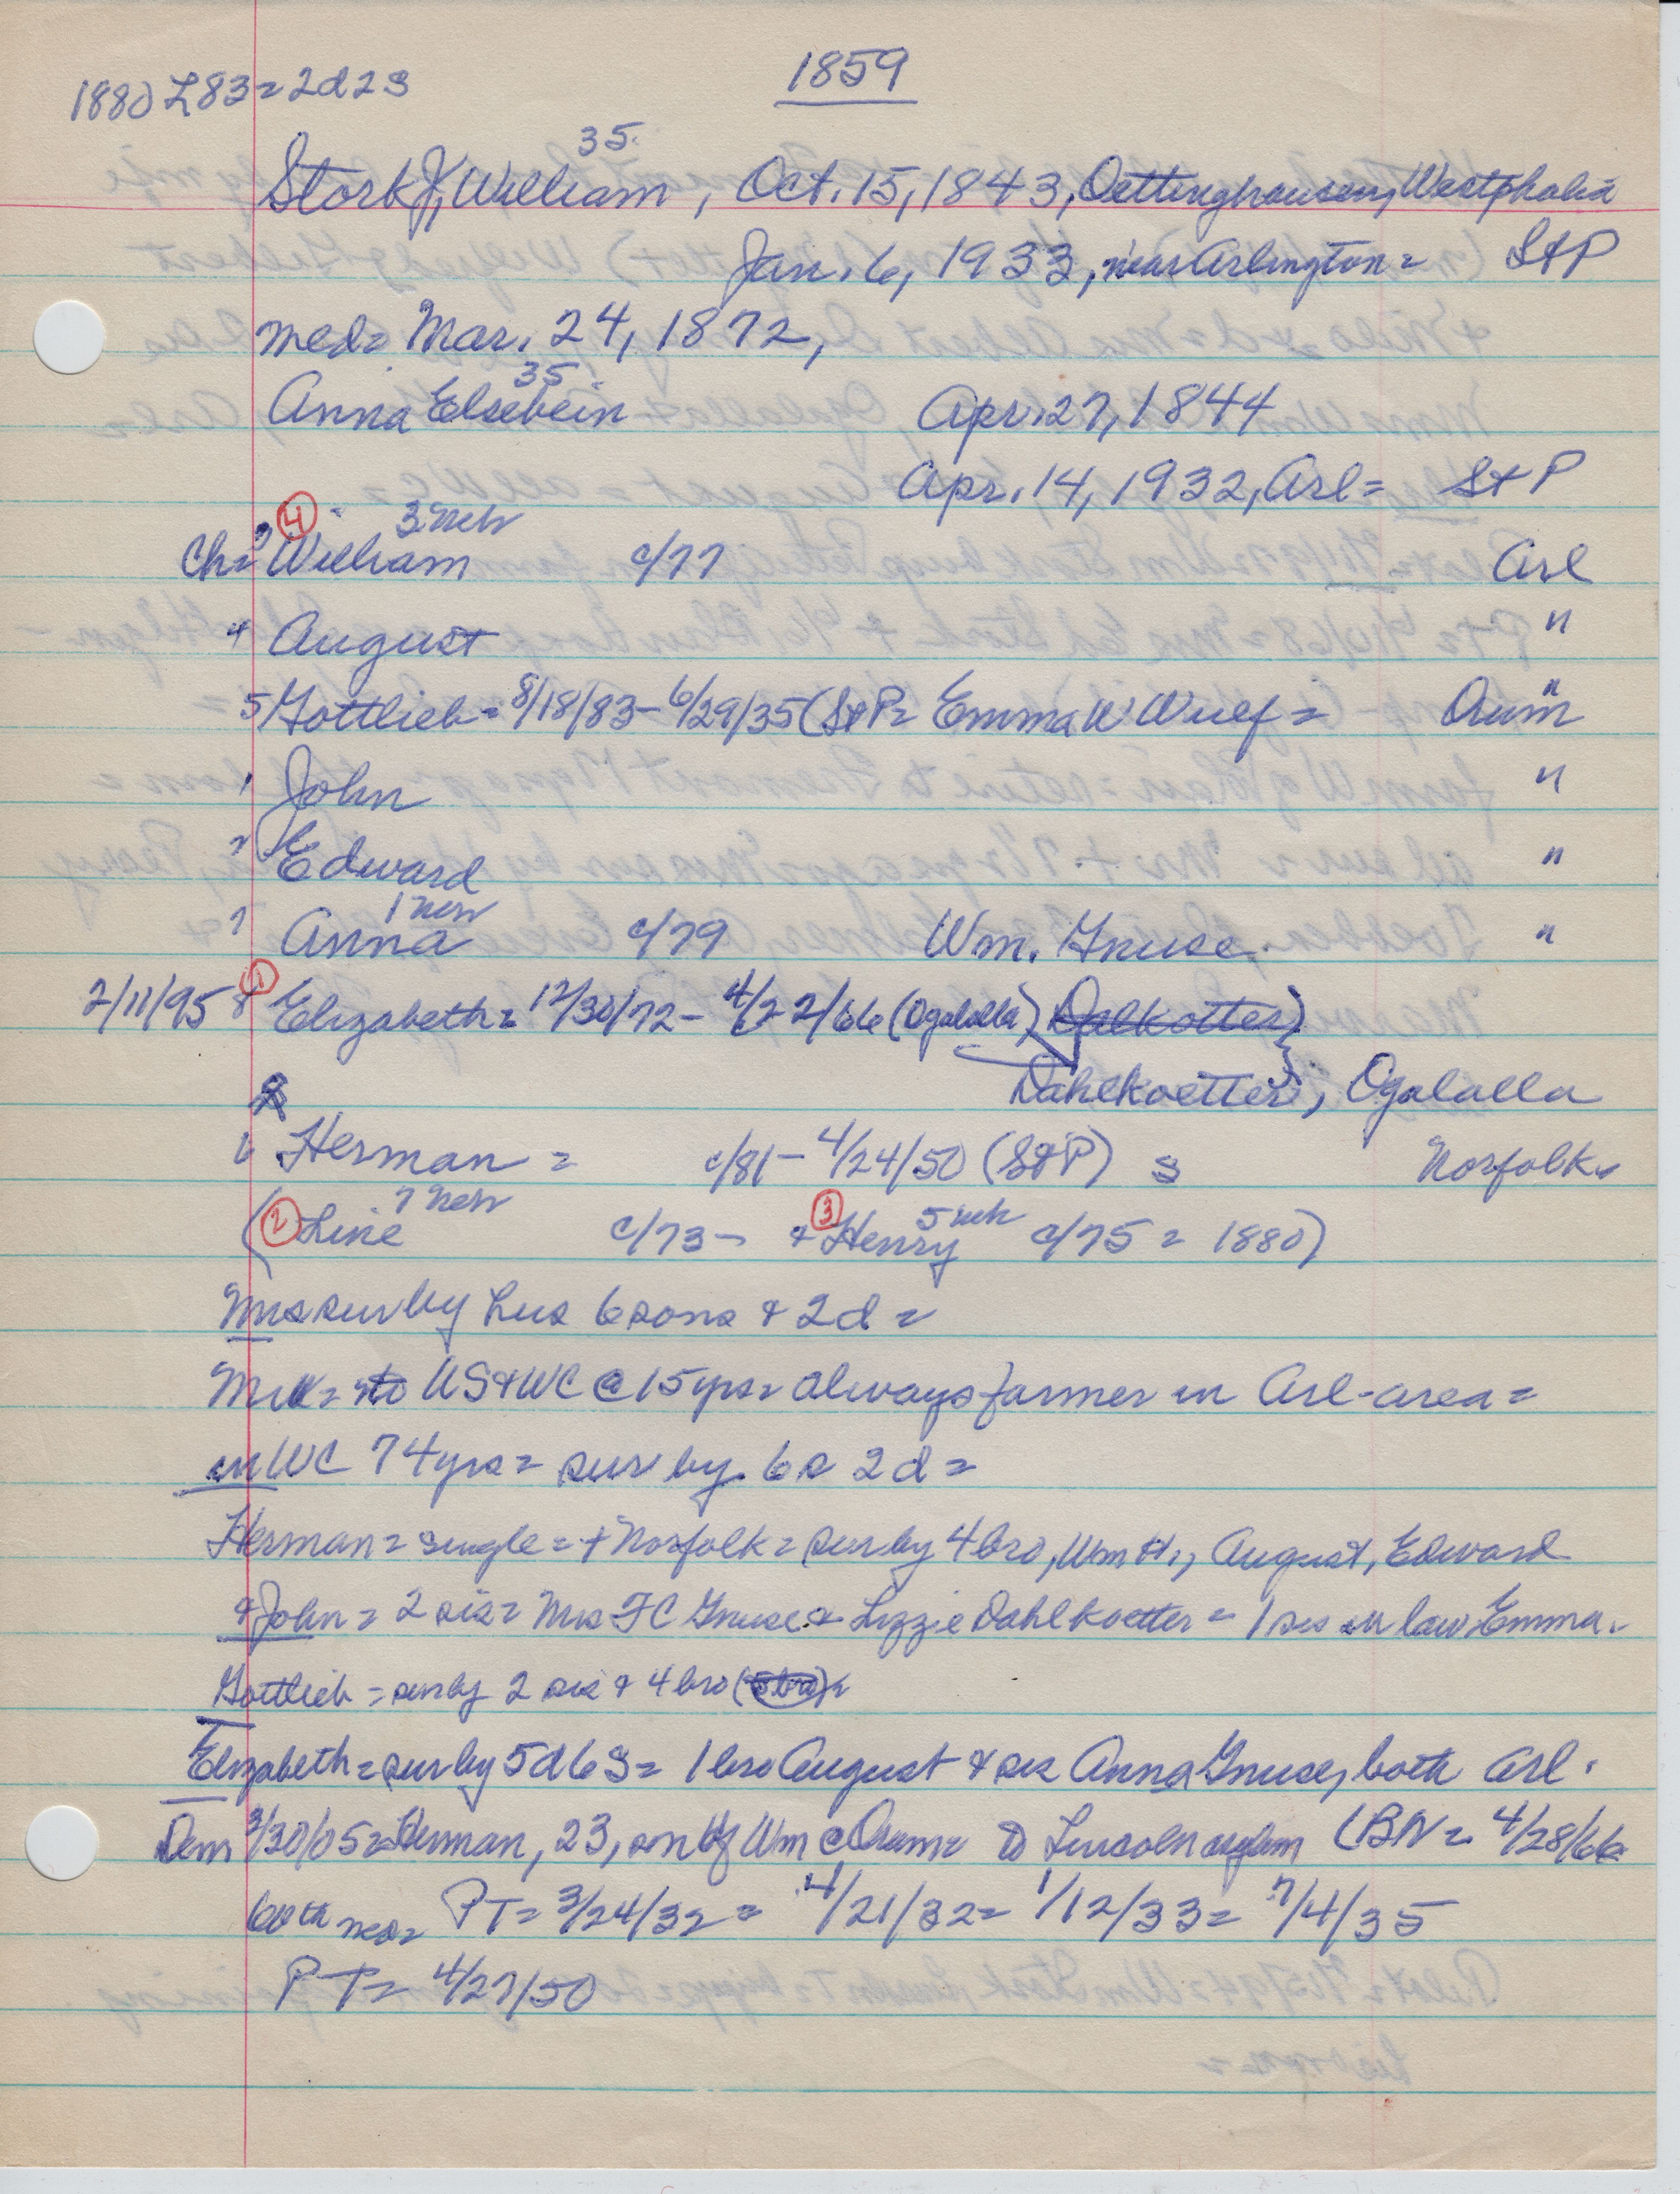 1859
1880 L83= 2d 2s
35.
Stork J, William, Oct. 15, 1843, Oettinghausen, Westphalia
Jan. 6, 1933, near Arlington= St P
med= Mar. 24, 1872,
35.
Anna Elsebein Apr. 27, 1844
Apr. 14, 1932, Arl= St P
④ 3 Neb
Ch= 3 William c/77 Arl
4 August "
5 Gottlieb= 8/18/83- 6/29/35 (St P= Emma W Wulf= Orum "
1 John "
2 Edward "
1 Neb
7 Anna c/79 Wm. Gnuse. "
2/11/95 8 ① Elizabeth= 12/30/72- 4/22/66 (Ogalalla) Dalkotter)
Dahlkoetter, Ogalalla
6 Herman = c/81- 4/24/50 (St P) s Norfolk
7 Neb ③ 5 Neb
(② Line c/73- & Henry c/75 = 1880)
Mrs sur by hus 6 sons & 2d=
Mr = to US & WC @ 15 yrs= always farmer in Arl-area=
in WC 74 yrs= sur by 6s 2d=
Herman= single= + Norfolk= sur by 4 bro, Wm H., August, Edward
& John= 2 sis= Mrs FC Gnuse & Lizzie Dahlkoetter= 1 sis in law Emma.
Gottlieb= sur by 2 sis & 4 bro (5 bro)=
Elizabeth= sur by 5d 6s= 1 bro August & sis Anna Gnuse, both Arl.
Dem 3/30/05= Herman, 23, son of Wm @ Orum= to Lincoln asylum (BN= 4/28/66
both nes= PT= 3/24/32= 4/21/32= 1/12/33= 7/4/35
PT= 4/27/50